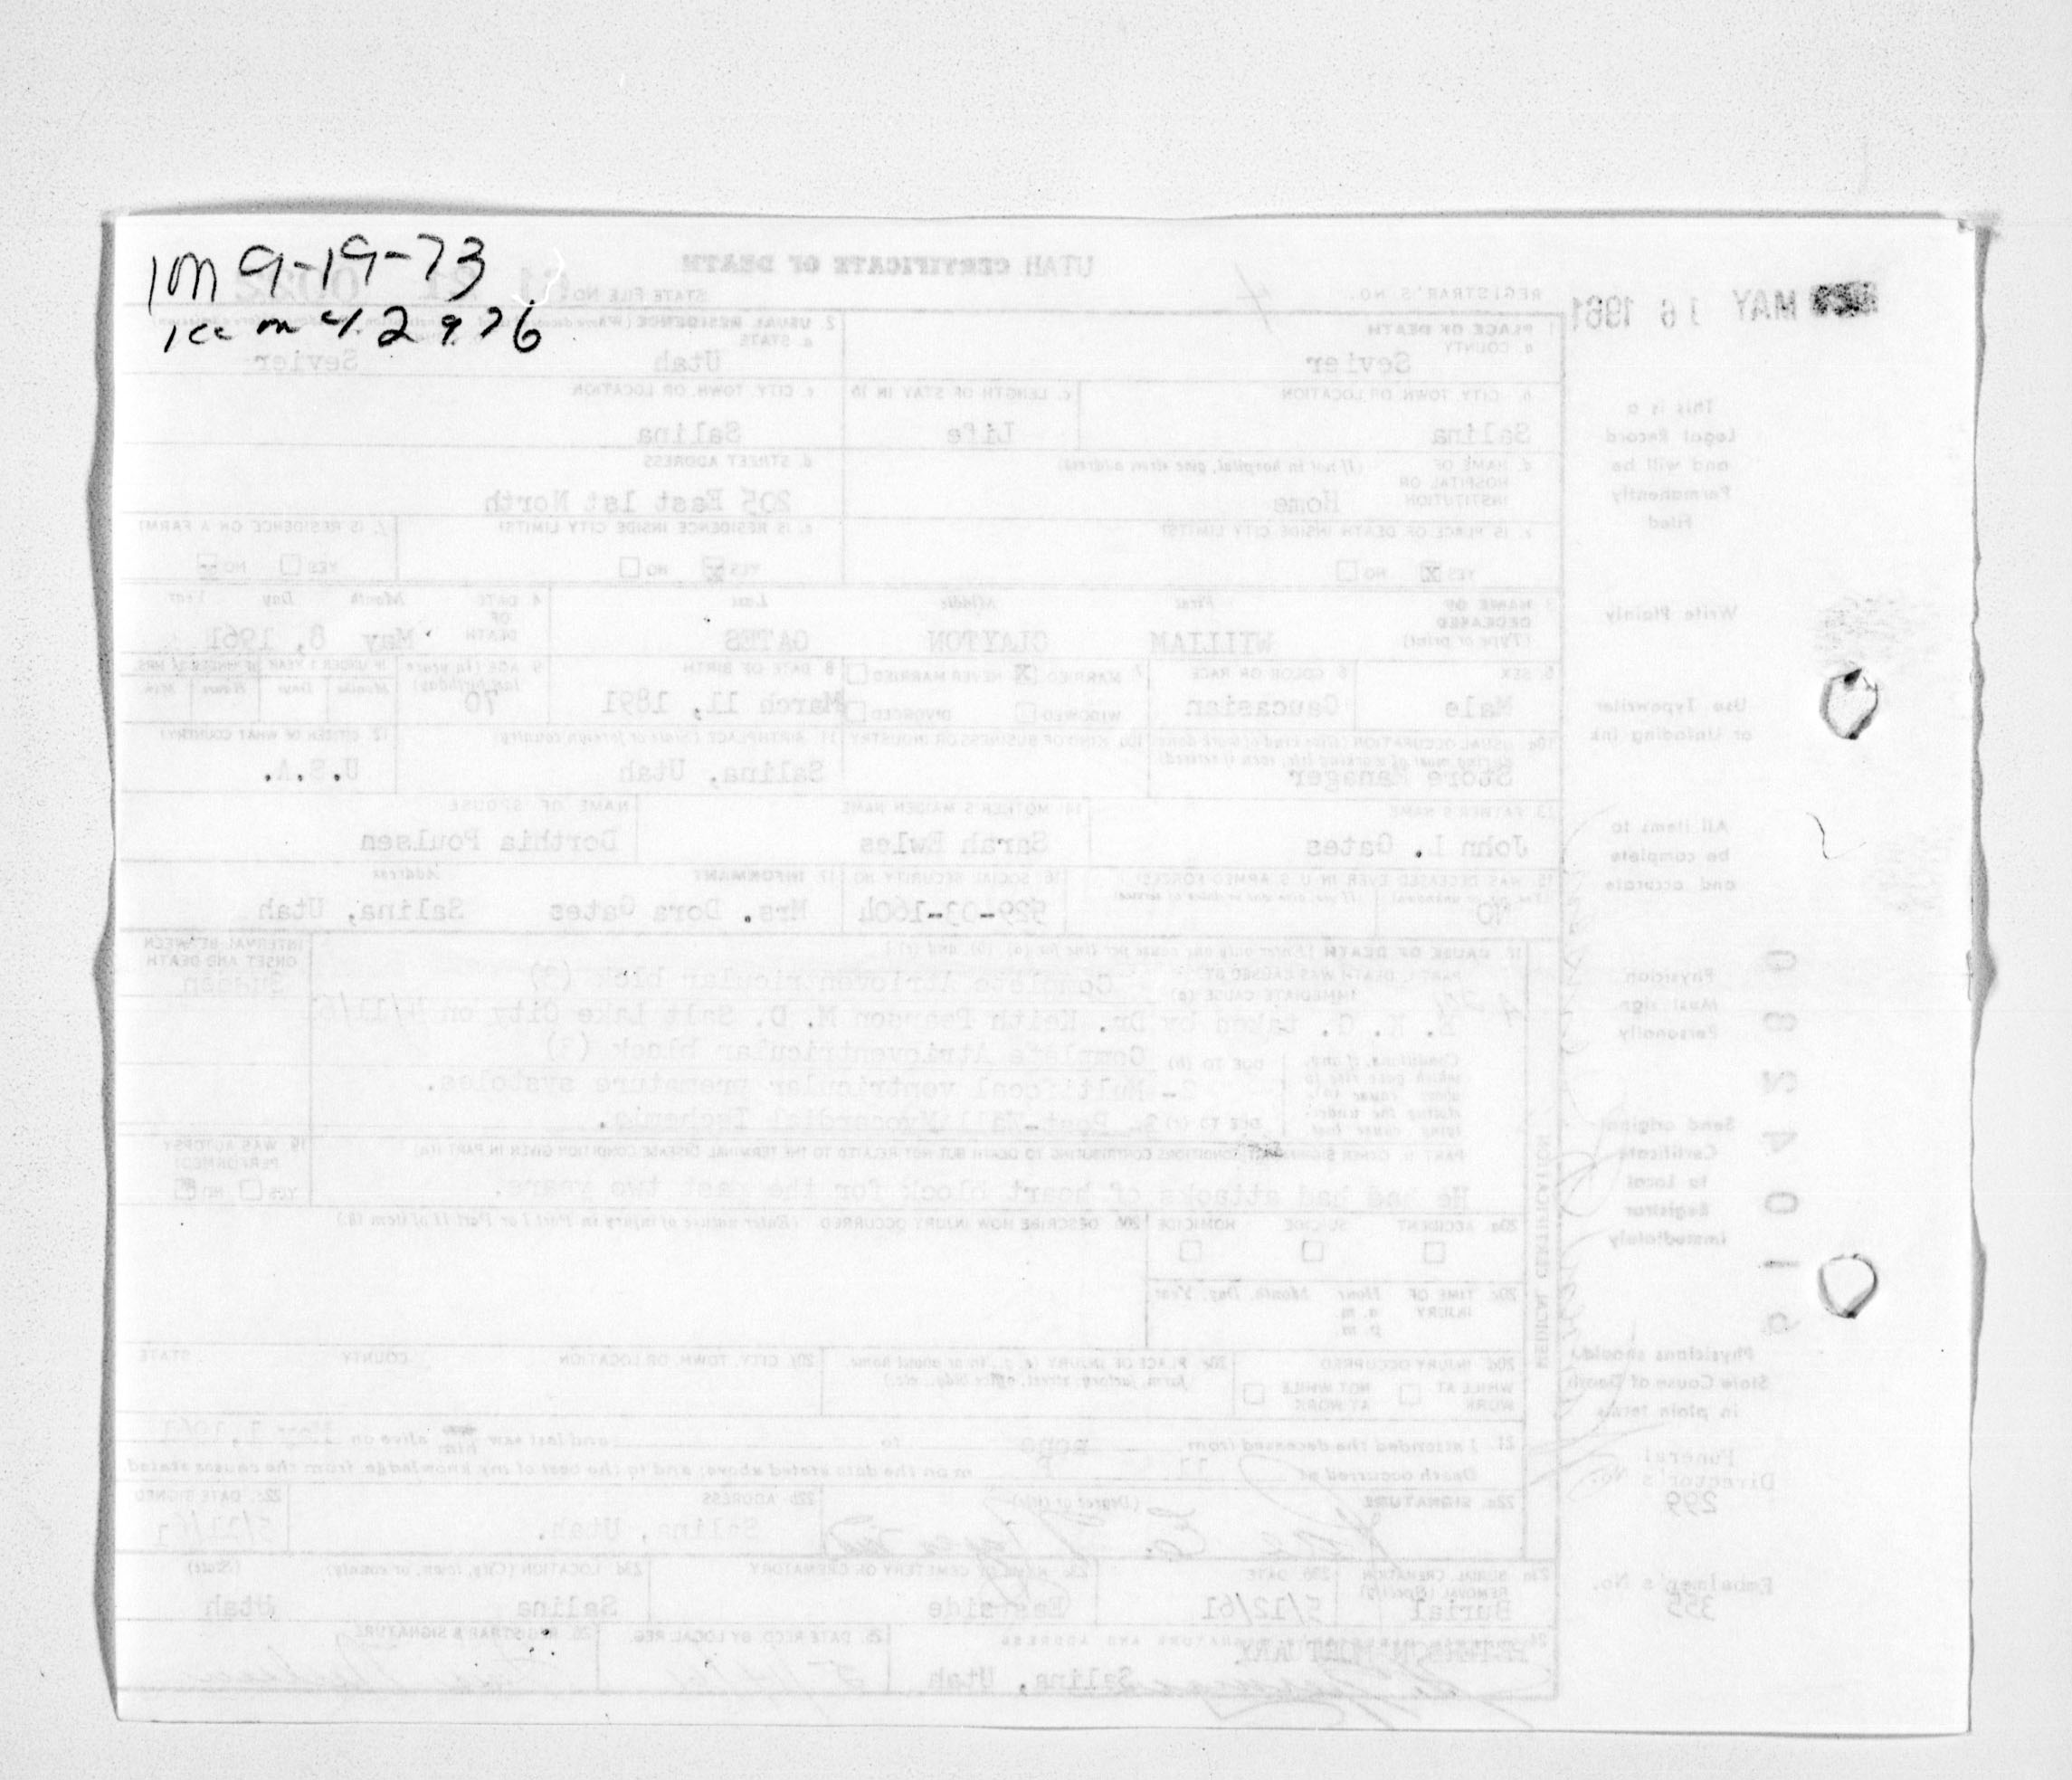 1m 9-19-73
1cc m 4.29.76
UTAH CERTIFICATE OF DEATH
MAY 16 1961
REGISTRAR'S NO. 4
STATE FILE NO. 61 21 0022
1. PLACE OF DEATH
a. COUNTY
Sevier
2. USUAL RESIDENCE
a. STATE
Utah
Sevier
b. CITY, TOWN, OR LOCATION
Salina
c. LENGTH OF STAY IN 1b
Life
c. CITY, TOWN, OR LOCATION
Salina
d. NAME OF HOSPITAL OR INSTITUTION
(If not in hospital, give street address)
Home
d. STREET ADDRESS
205 East 1st North
e. IS PLACE OF DEATH INSIDE CITY LIMITS?
YES X NO
e. IS RESIDENCE INSIDE CITY LIMITS?
YES X NO
f. IS RESIDENCE ON A FARM?
YES NO X
3. NAME OF DECEASED
(Type or print)
First Middle Last
WILLIAM CLAYTON GATES
4. DATE OF DEATH
Month Day Year
May 8, 1961
5. SEX
Male
6. COLOR OR RACE
Caucasian
7. MARRIED X NEVER MARRIED
WIDOWED DIVORCED
8. DATE OF BIRTH
March 11, 1891
9. AGE (In years last birthday)
70
10a. USUAL OCCUPATION
Store Manager
10b. KIND OF BUSINESS OR INDUSTRY
11. BIRTHPLACE (State or foreign country)
Salina, Utah
12. CITIZEN OF WHAT COUNTRY?
U.S.A.
13. FATHER'S NAME
John L. Gates
14. MOTHER'S MAIDEN NAME
Sarah Ewles
NAME OF SPOUSE
Dorthia Poulsen
15. WAS DECEASED EVER IN U.S. ARMED FORCES?
NO
16. SOCIAL SECURITY NO.
529-03-1604
17. INFORMANT Address
Mrs. Dora Gates Salina, Utah
18. CAUSE OF DEATH (Enter only one cause per line for (a), (b), and (c).)
PART I. DEATH WAS CAUSED BY:
IMMEDIATE CAUSE (a)
Complete Atrioventricular block (3)
E. K. G. taken by Dr. Keith Pearson M. D. Salt Lake City on 4/11/61
DUE TO (b)
Complete Atrioventricular block (3)
2- Multifocal ventricular premature systoles.
DUE TO (c)
3- Post-Wall Myocardial Ischemia.
INTERVAL BETWEEN ONSET AND DEATH
Sudden
PART II. OTHER SIGNIFICANT CONDITIONS CONTRIBUTING TO DEATH BUT NOT RELATED TO THE TERMINAL DISEASE CONDITION GIVEN IN PART I(a)
He had had attacks of heart block for the past two years.
19. WAS AUTOPSY PERFORMED?
YES NO X
20a. ACCIDENT SUICIDE HOMICIDE
20b. DESCRIBE HOW INJURY OCCURRED (Enter nature of injury in Part I or Part II of item 18.)
20c. TIME OF INJURY Hour Month, Day, Year
a. m.
p. m.
20d. INJURY OCCURRED
WHILE AT WORK NOT WHILE AT WORK
20e. PLACE OF INJURY (e.g., in or about home, farm, factory, street, office bldg., etc.)
20f. CITY, TOWN, OR LOCATION COUNTY STATE
MEDICAL CERTIFICATION
21. I attended the deceased from none to and last saw him alive on May 1, 1961
Death occurred at 11 P m on the date stated above; and to the best of my knowledge, from the causes stated.
22a. SIGNATURE (Degree or title)
22b. ADDRESS
Salina, Utah.
22c. DATE SIGNED
5/11/61
23a. BURIAL, CREMATION, REMOVAL (Specify)
Burial
23b. DATE
5/12/61
23c. NAME OF CEMETERY OR CREMATORY
Eastside
23d. LOCATION (City, town, or county) (State)
Salina Utah
24. FUNERAL DIRECTOR'S SIGNATURE AND ADDRESS
PETERSON MORTUARY
Salina, Utah
25. DATE RECD. BY LOCAL REG.
26. REGISTRAR'S SIGNATURE
This is a
Legal Record
and will be
Permanently
Filed
Write Plainly
Use Typewriter
or Unfading Ink
All items to
be complete
and accurate
Physician
Must sign
Personally
Send original
Certificate
to Local
Registrar
Immediately
Physicians should
State Cause of Death
in plain terms
Funeral
Director's No.
299
Embalmer's No.
355